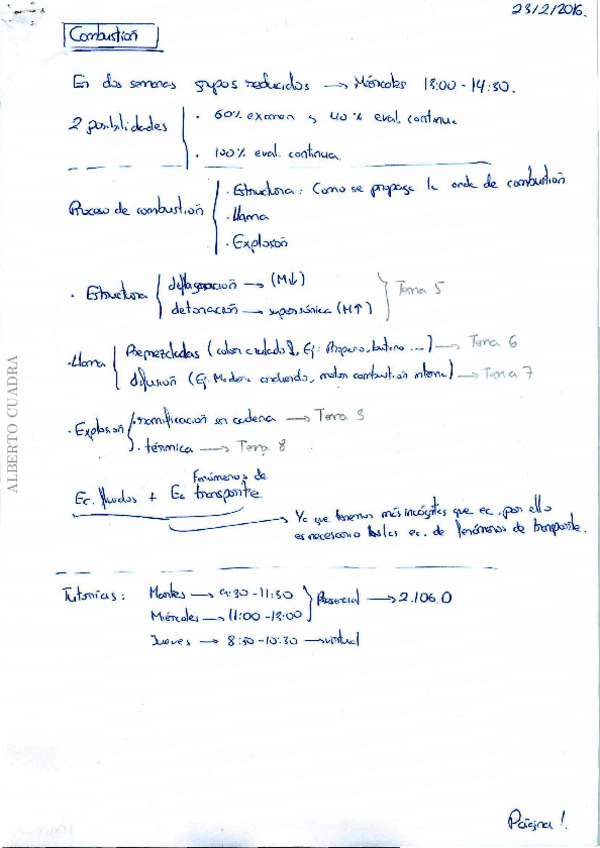 23/2/2016.
Combustión
En dos semanas grupos reducidos → Miércoles 13:00 - 14:30.
2 posibilidades
· 60% examen y 40% eval. continua
· 100% eval. continua
Proceso de combustión
· Estructura: Como se propaga la onda de combustión
· Llama
· Explosión
· Estructura
deflagración → (M↓)
detonación → supersónica (M↑)
Tema 5
· Llama
Premezcladas (Ej: Propano, butano ...) → Tema 6
difusión (Ej: Madera ardiendo, motor combustión interna) → Tema 7
· Explosión
· ramificación en cadena → Tema 3
· térmica → Tema 8
Ec. fluidos + Ec Fenómenos de transporte
→ Ya que tenemos más incógnitas que ec. por ello
es necesario las ec. de fenómenos de transporte.
Tutorías:
Martes → 9:30 - 11:30
Miércoles → 11:00 - 13:00
Presencial → 2.106.0
Jueves → 8:30 - 10:30 → virtual
Página 1.
ALBERTO CUADRA